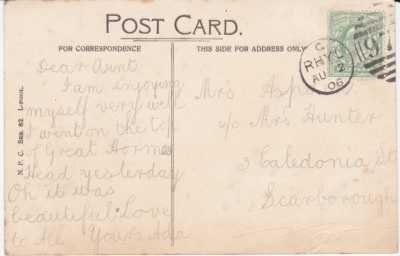 POST CARD.
FOR CORRESPONDENCE
THIS SIDE FOR ADDRESS ONLY
Dear Aunt
I am enjoying
myself very well
I went on the top
of Great Hormes
Head yesterday
Oh it was
beautiful Love
to All Yours Ada
Mrs
c/o Mrs Hunter
3 Caledonia St
Scarborough
RHYL
AU 2
06
97
N. P. C.